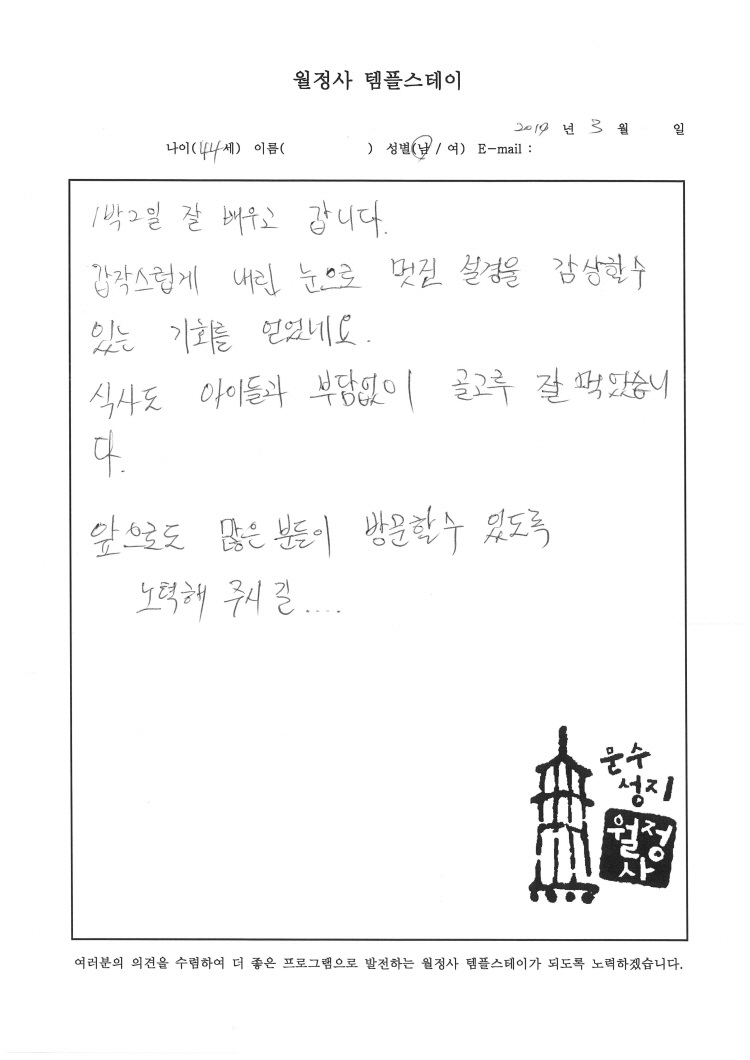 월정사 템플스테이
2019 년 3 월 일
나이(44세) 이름( ) 성별(남 / 여) E-mail :
1박2일 잘 배우고 갑니다.
갑작스럽게 내린 눈으로 멋진 설경을 감상할수
있는 기회를 얻었네요.
식사도 아이들과 부담없이 골고루 잘 먹었습니
다.
앞으로도 많은 분들이 방문할수 있도록
노력해 주시길....
문수
성지
월정
사
여러분의 의견을 수렴하여 더 좋은 프로그램으로 발전하는 월정사 템플스테이가 되도록 노력하겠습니다.